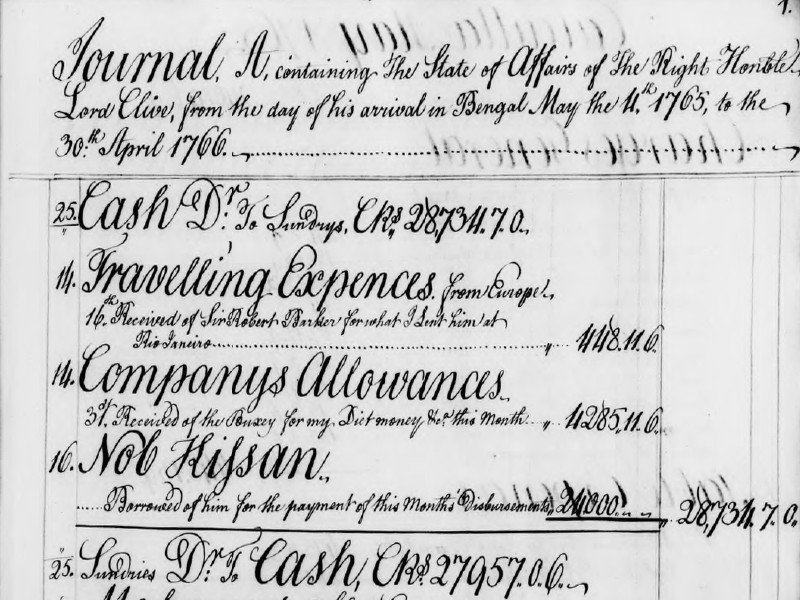 1.
Journal, A, containing The State of Affairs of The Right Honble
Lord Clive, from the day of his arrival in Bengal May the 4.th 1765, to the
30.th April 1766.
25. Cash Dr. To Sundrys, CRs 28,734.7.0.
14. Travelling Expences from Europe
16.th Received of Sir Robert Barker for what I Lent him at
Rio Janeiro ,, 448.11.6.
14. Companys Allowances
31.st Received of the Buxey for my Diet money &ca this Month ,, 4285.11.6.
16. Nob Kissan
Borrowed of him for the payment of this Months Disbursements ,, 24,000. ,, 28,734.7.0.
25. Sundries Dr. To Cash, CRs 27957.0.6.